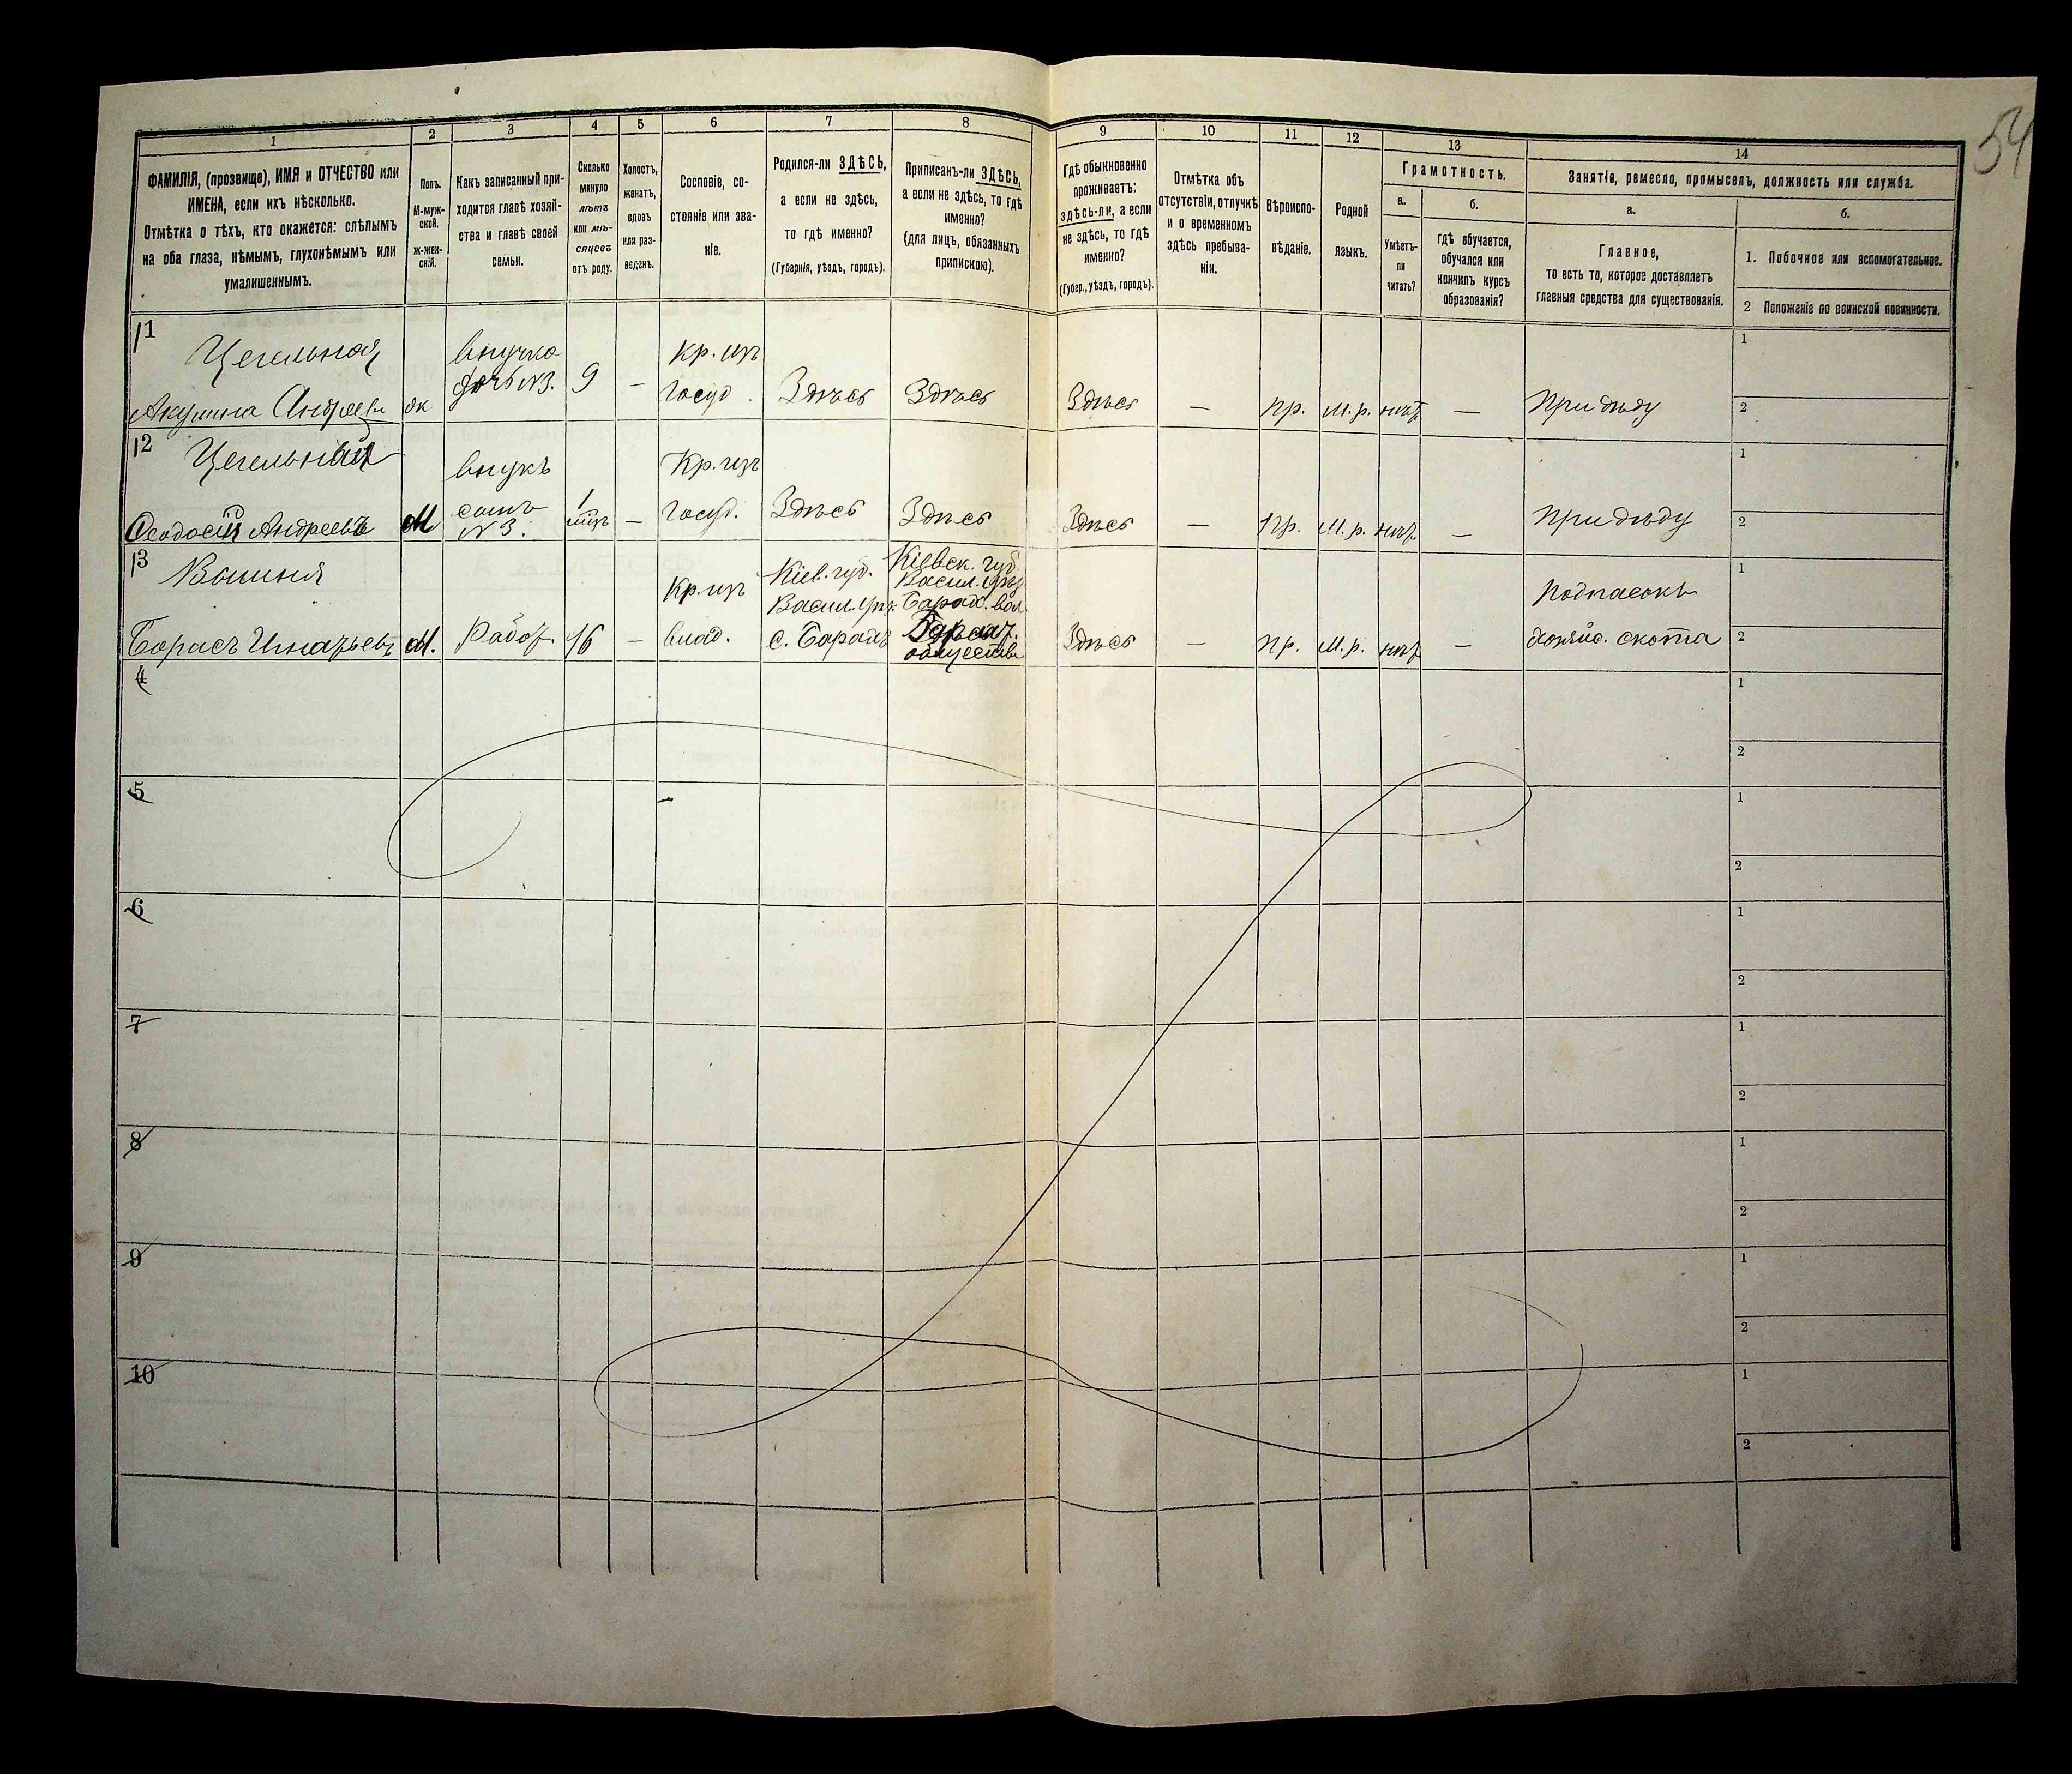 54
1
2
3
4
5
6
7
8
9
10
11
12
13
14
ФАМИЛІЯ, (прозвище), ИМЯ и ОТЧЕСТВО или
ИМЕНА, если ихъ нѣсколько.
Отмѣтка о тѣхъ, кто окажется: слѣпымъ
на оба глаза, нѣмымъ, глухонѣмымъ или
умалишеннымъ.
Полъ.
М-муж-
ской.
Ж-жен-
скій.
Какъ записанный при-
ходится главѣ хозяй-
ства и главѣ своей
семьи.
Сколько
минуло
лѣтъ
или мѣ-
сяцевъ
отъ роду.
Холостъ,
женатъ,
вдовъ
или раз-
веденъ.
Сословіе, со-
стояніе или зва-
ніе.
Родился-ли ЗДѢСЬ,
а если не здѣсь,
то гдѣ именно?
(Губернія, уѣздъ, городъ).
Приписанъ-ли ЗДѢСЬ,
а если не здѣсь, то гдѣ
именно?
(для лицъ, обязанныхъ
припискою).
Гдѣ обыкновенно
проживаетъ:
здѣсь-ли, а если
не здѣсь, то гдѣ
именно?
(Губер., уѣздъ, городъ).
Отмѣтка объ
отсутствіи, отлучкѣ
и о временномъ
здѣсь пребыва-
ніи.
Вѣроиспо-
вѣданіе.
Родной
языкъ.
Грамотность.
а.
Умѣетъ-
ли
читать?
б.
Гдѣ обучается,
обучался или
кончилъ курсъ
образованія?
Занятіе, ремесло, промыселъ, должность или служба.
а.
Главное,
то есть то, которое доставляетъ
главныя средства для существованія.
б.
1. Побочное или вспомогательное.
2 Положеніе по воинской повинности.
11
Цегельная
Акулина Андреев
ж
внучка
дочь №3.
9
—
Кр. изъ
Госуд.
Здѣсь
Здѣсь
Здѣсь
—
пр.
м. р.
нѣт
—
При дѣду
1
2
12
Цегельный
Феодосій Андреевъ
М
внукъ
сынъ
№3.
1
—
Кр. изъ
Госуд.
Здѣсь
Здѣсь
Здѣсь
—
пр.
м. р.
нѣт
—
При дѣду
1
2
13
Тарасъ Игнатьевъ
М.
Работ.
16
—
Кр. изъ
влад.
Кіев. губ.
Васил. у.
Кіевск. губ.
Васил. у.
вол.
обществ
Здѣсь
—
пр.
м. р.
нѣт
—
Подпасокъ
хозяйс. скота
1
2
4
1
2
5
1
2
6
1
2
7
1
2
8
1
2
9
1
2
10
1
2